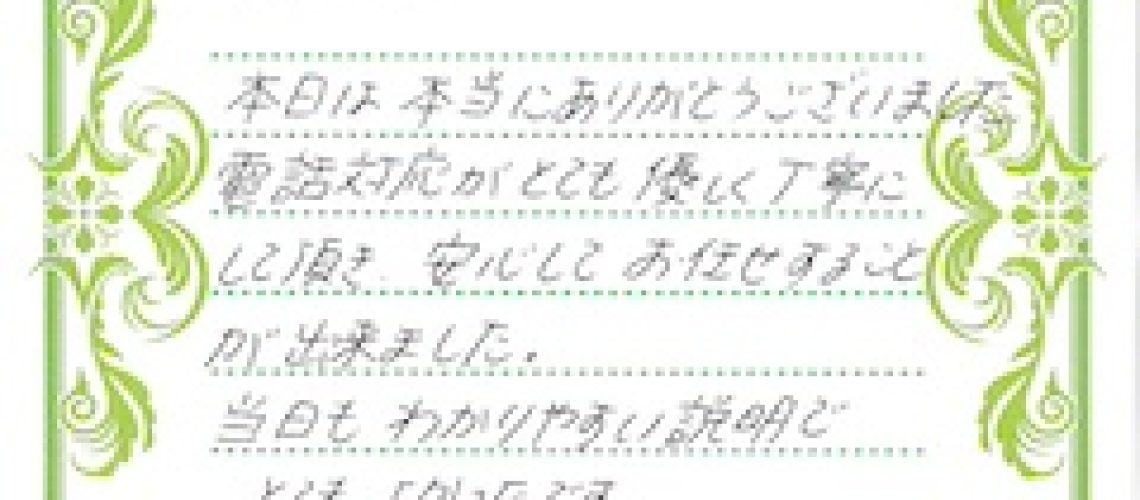 本日は 本当にありがとうございました。
電話対応がとても優しく丁寧に
して頂き、安心して お任せすること
が出来ました。
当日も わかりやすい説明で
とても